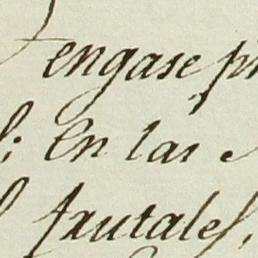 engase
; En las
frutales,